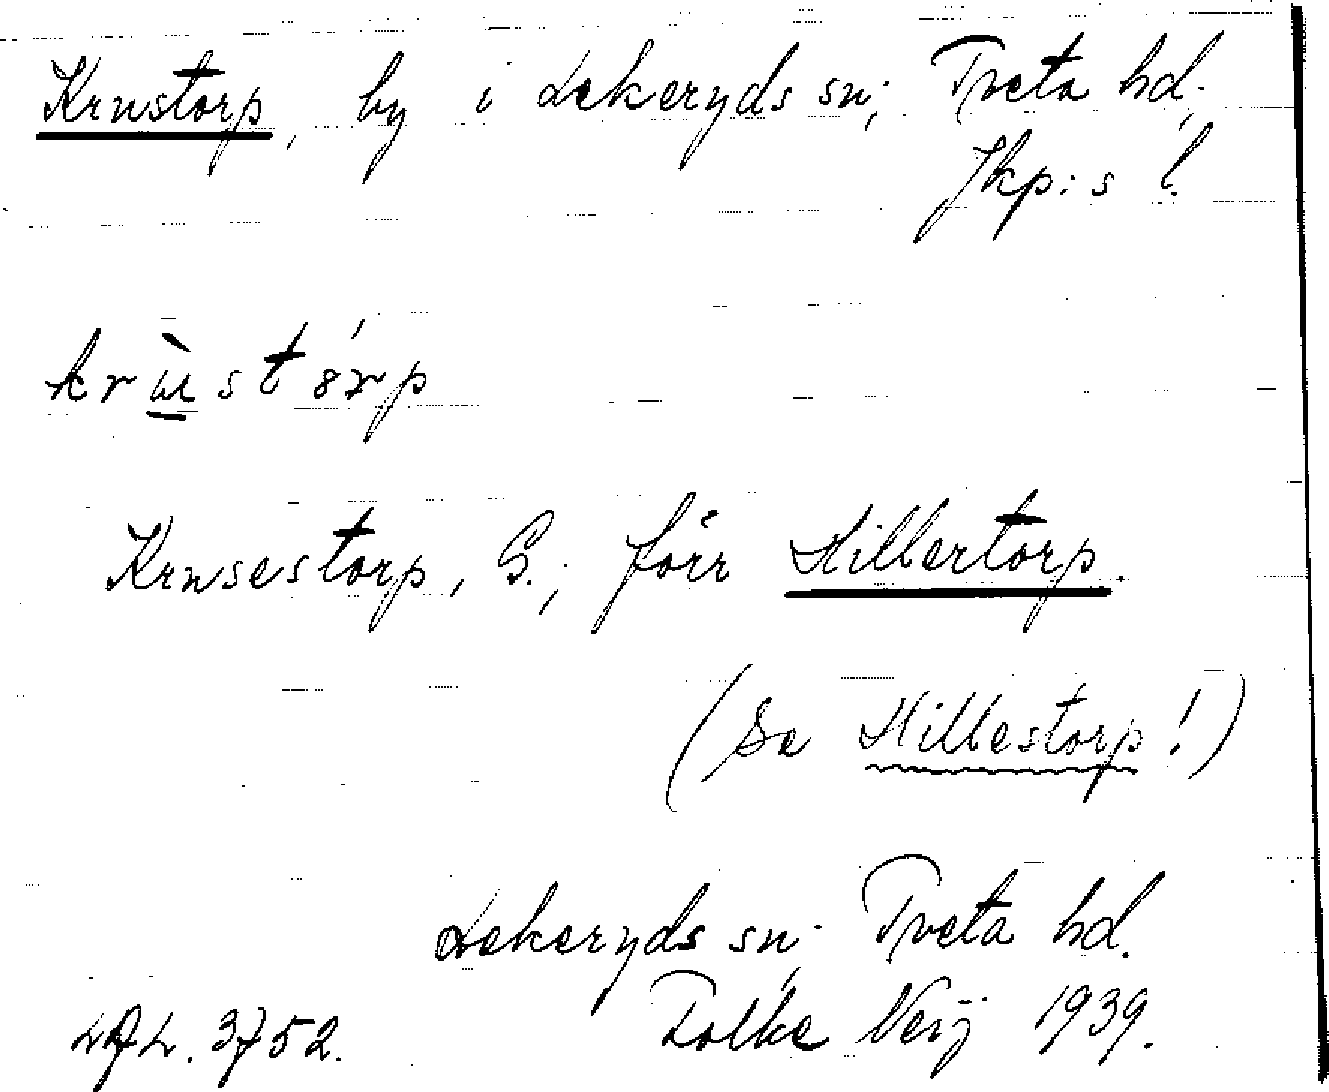 Krustorp, by i Lekeryds sn, Tveta hd,
Jkp:s l.
krùstórp
Krusestorp, G., förr Hillertorp.
(Se Hillestorp!)
Lekeryds sn, Tveta hd.
LAL. 3752. Folke Neij 1939.